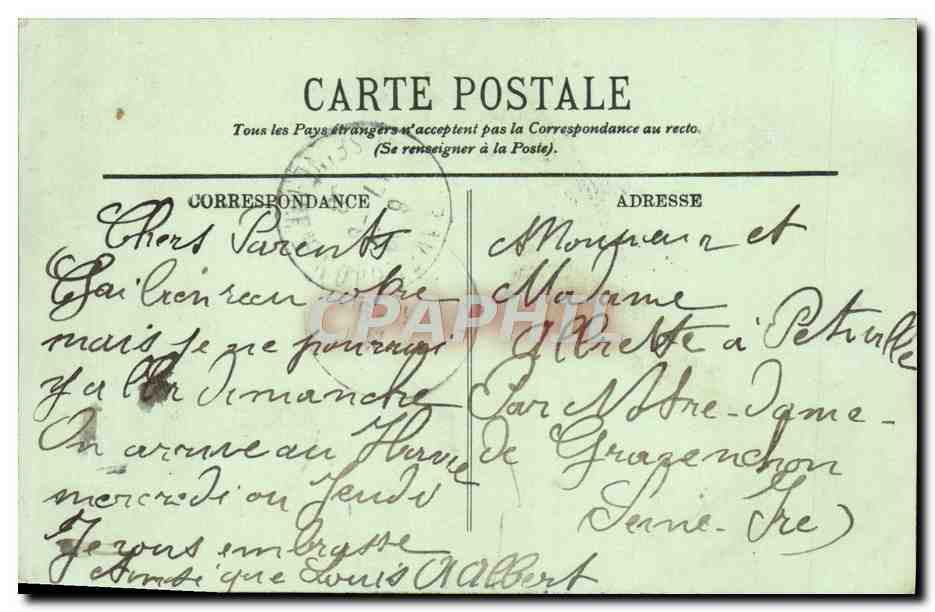 CARTE POSTALE
Tous les Pays étrangers n'acceptent pas la Correspondance au recto.
(Se renseigner à la Poste).
CORRESPONDANCE
Chers Parents
J'ai bien reçu votre
mais je ne pourrai
y aller dimanche
On arrive au Havre
mercredi ou Jeudi
Je vous embrasse
Ainsi que Louis Albert
ADRESSE
Monsieur et
Madame
à
Par Notre-Dame-
de Gravenchon
Seine-Ire)
CPAPHIL